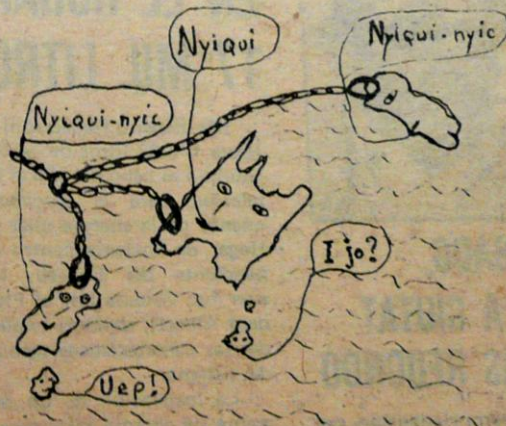 Nyiqui
Nyiqui-nyic
Nyiqui-nyic
I jo?
Uep!